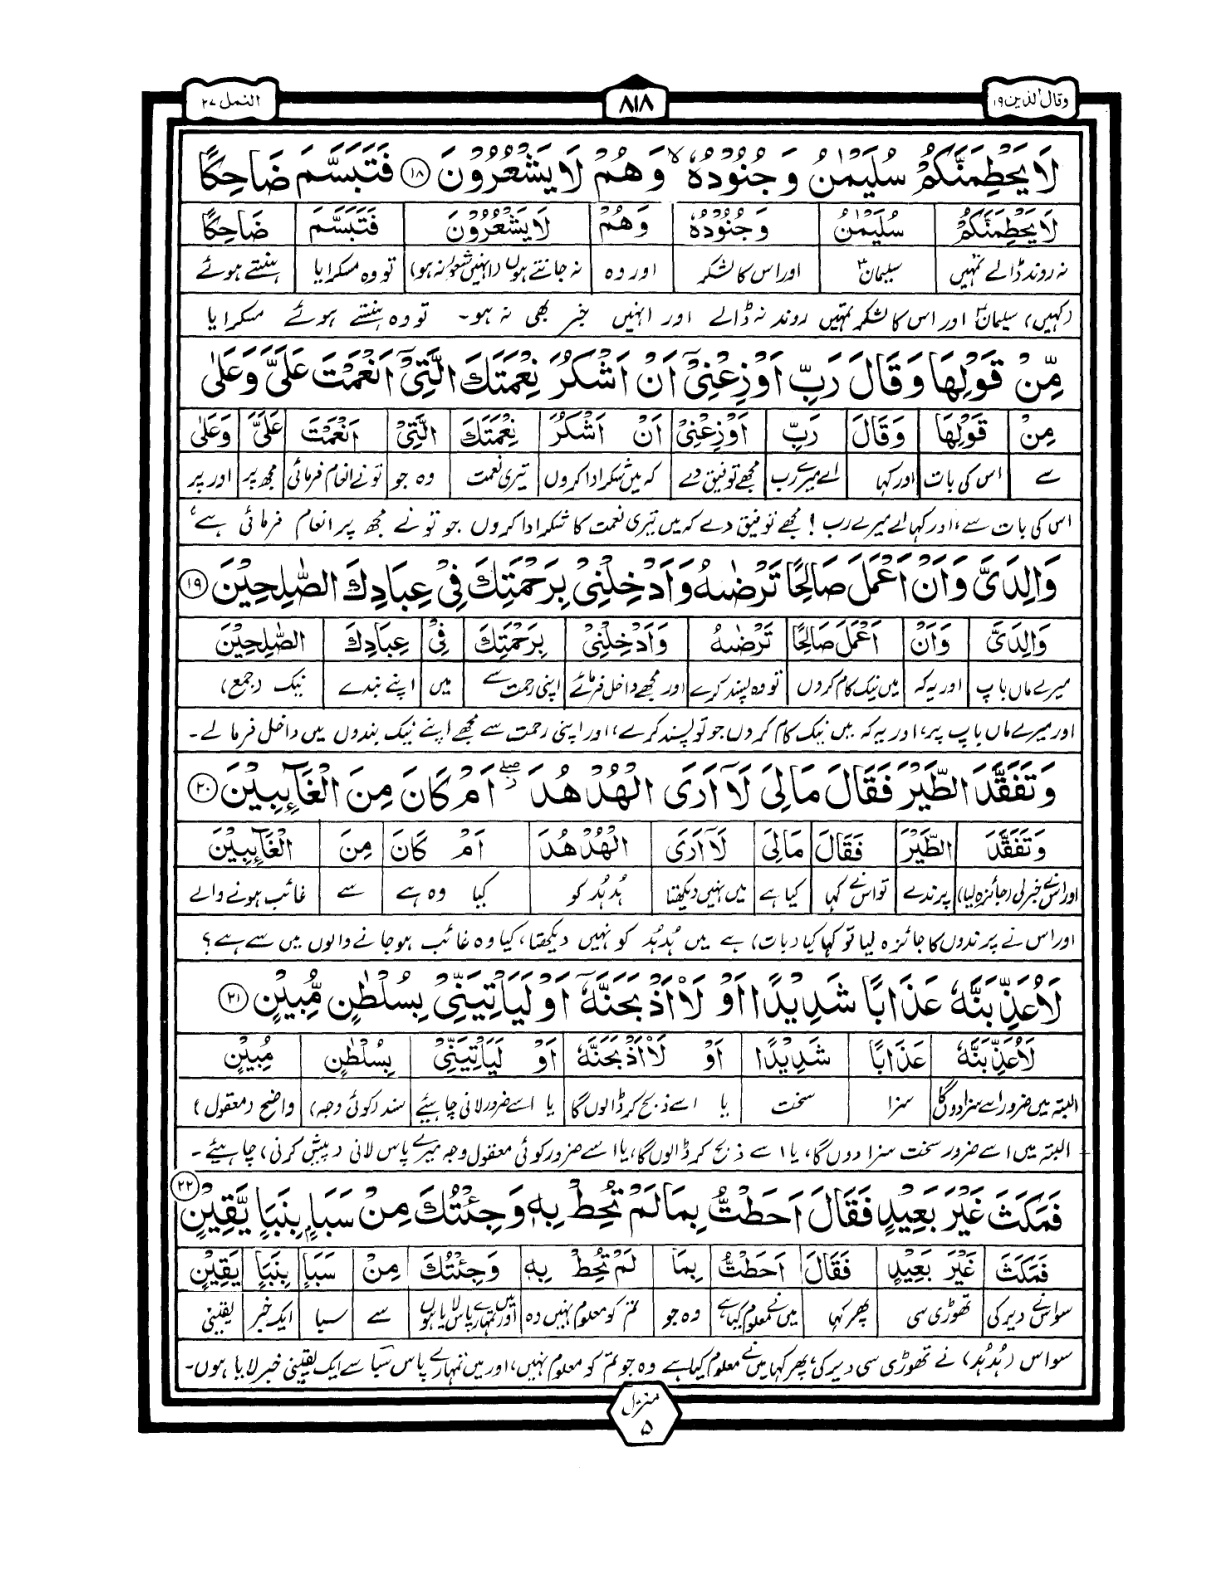 وقال الذین ۱۹
۸۱۸
النمل ۲۷
لَا یَحْطِمَنَّكُمْ سُلَیْمٰنُ وَجُنُوْدُهٗ ۙ وَهُمْ لَا یَشْعُرُوْنَ ﴿۱۸﴾ فَتَبَسَّمَ ضَاحِكًا
لَا یَحْطِمَنَّكُمْ سُلَیْمٰنُ وَجُنُوْدُهٗ وَهُمْ لَا یَشْعُرُوْنَ فَتَبَسَّمَ ضَاحِكًا
نہ روند ڈالے تمہیں سلیمانؑ اور اس کا لشکر اور وہ نہ جانتے ہوں (انہیں شعور نہ ہو) تو وہ مسکرایا ہنستے ہوئے
(کہیں) سلیمانؑ اور اس کا لشکر تمہیں روند نہ ڈالے اور انہیں خبر بھی نہ ہو۔ تو وہ ہنستے ہوئے مسکرایا
مِّنْ قَوْلِهَا وَقَالَ رَبِّ اَوْزِعْنِیْۤ اَنْ اَشْكُرَ نِعْمَتَكَ الَّتِیْۤ اَنْعَمْتَ عَلَیَّ وَعَلٰی
مِنْ قَوْلِهَا وَقَالَ رَبِّ اَوْزِعْنِیْۤ اَنْ اَشْكُرَ نِعْمَتَكَ الَّتِیْۤ اَنْعَمْتَ عَلَیَّ وَعَلٰی
سے اس کی بات اور کہا اے میرے رب مجھے توفیق دے کہ میں شکر ادا کروں تیری نعمت وہ جو تو نے انعام فرمائی مجھ پر اور پر
اس کی بات سے، اور کہا اے میرے رب! مجھے توفیق دے کہ میں تیری نعمت کا شکر ادا کروں جو تو نے مجھ پر انعام فرمائی ہے،
وَالِدَیَّ وَاَنْ اَعْمَلَ صَالِحًا تَرْضٰىهُ وَاَدْخِلْنِیْ بِرَحْمَتِكَ فِیْ عِبَادِكَ الصّٰلِحِیْنَ ﴿۱۹﴾
وَالِدَیَّ وَاَنْ اَعْمَلَ صَالِحًا تَرْضٰىهُ وَاَدْخِلْنِیْ بِرَحْمَتِكَ فِیْ عِبَادِكَ الصّٰلِحِیْنَ
میرے ماں باپ اور یہ کہ میں نیک کام کروں تو وہ پسند کرے اور مجھے داخل فرمالے اپنی رحمت سے میں اپنے بندے نیک (جمع)
اور میرے ماں باپ پر، اور یہ کہ میں نیک کام کروں جو تو پسند کرے، اور اپنی رحمت سے مجھے اپنے نیک بندوں میں داخل فرمالے۔
وَتَفَقَّدَ الطَّیْرَ فَقَالَ مَالِیَ لَاۤ اَرَی الْهُدْهُدَ ۖ٘ اَمْ كَانَ مِنَ الْغَآىِٕبِیْنَ ﴿۲۰﴾
وَتَفَقَّدَ الطَّیْرَ فَقَالَ مَالِیَ لَاۤ اَرَی الْهُدْهُدَ اَمْ كَانَ مِنَ الْغَآىِٕبِیْنَ
اور اس نے خبر لی (جائزہ لیا) پرندے تو اس نے کہا کیا ہے میں نہیں دیکھتا ہُدہُد کو کیا وہ ہے سے غائب ہونے والے
اور اس نے پرندوں کا جائزہ لیا تو کہا کیا (بات) ہے میں ہُدہُد کو نہیں دیکھتا، کیا وہ غائب ہو جانے والوں میں سے ہے؟
لَاُعَذِّبَنَّهٗ عَذَابًا شَدِیْدًا اَوْ لَاۡاَذْبَحَنَّهٗۤ اَوْ لَیَاْتِیَنِّیْ بِسُلْطٰنٍ مُّبِیْنٍ ﴿۲۱﴾
لَاُعَذِّبَنَّهٗ عَذَابًا شَدِیْدًا اَوْ لَاۡاَذْبَحَنَّهٗۤ اَوْ لَیَاْتِیَنِّیْ بِسُلْطٰنٍ مُبِیْنٍ
البتہ میں ضرور اسے سزا دوں گا سزا سخت یا اسے ذبح کر ڈالوں گا یا اسے ضرور لانی چاہیئے سند (کوئی وجہ) واضح (معقول)
البتہ میں اسے ضرور سخت سزا دوں گا، یا اسے ذبح کر ڈالوں گا، یا اسے ضرور کوئی معقول وجہ میرے پاس لانی (پیش کرنی) چاہیئے۔
فَمَكَثَ غَیْرَ بَعِیْدٍ فَقَالَ اَحَطْتُّ بِمَا لَمْ تُحِطْ بِهٖ وَجِئْتُكَ مِنْ سَبَاٍ بِنَبَاٍ یَّقِیْنٍ ﴿۲۲﴾
فَمَكَثَ غَیْرَ بَعِیْدٍ فَقَالَ اَحَطْتُّ بِمَا لَمْ تُحِطْ بِهٖ وَجِئْتُكَ مِنْ سَبَاٍ بِنَبَاٍ یَقِیْنٍ
سو اس نے دیر کی تھوڑی سی پھر کہا میں نے معلوم کیا ہے وہ جو تم کو معلوم نہیں وہ اور میں تمہارے پاس لایا ہوں سے سبا ایک خبر یقینی
سو اس (ہُدہُد) نے تھوڑی سی دیر کی، پھر کہا میں نے معلوم کیا ہے وہ جو تم کو معلوم نہیں، اور میں تمہارے پاس سبا سے ایک یقینی خبر لایا ہوں۔
منزل
۵